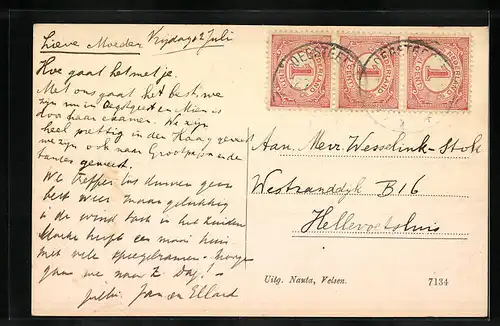 Lieve Moeder Vrijdag 2 Juli
Hoe gaat het met je.
Met ons gaat het best, we
zijn nu in Oegstgeest en Mien is
door haar examen. We zijn
heel prettig in den Haag geweest
we zijn ook naar Grootpa en de
tantes geweest.
We treffen
best weer maar gelukkig
is de wind ook in het Zuiden
heeft een mooi huis
met vele
gaan we naar Z. Dag!
Jan en Ellard
OEGSTGEEST
OEGSTGEEST
NEDERLAND
1
CENT
NEDERLAND
1
CENT
NEDERLAND
1
CENT
Aan Mevr. Wesselink-Stok
Westranddyk B16
Hellevoetsluis
Uitg. Nauta, Velsen.
7134